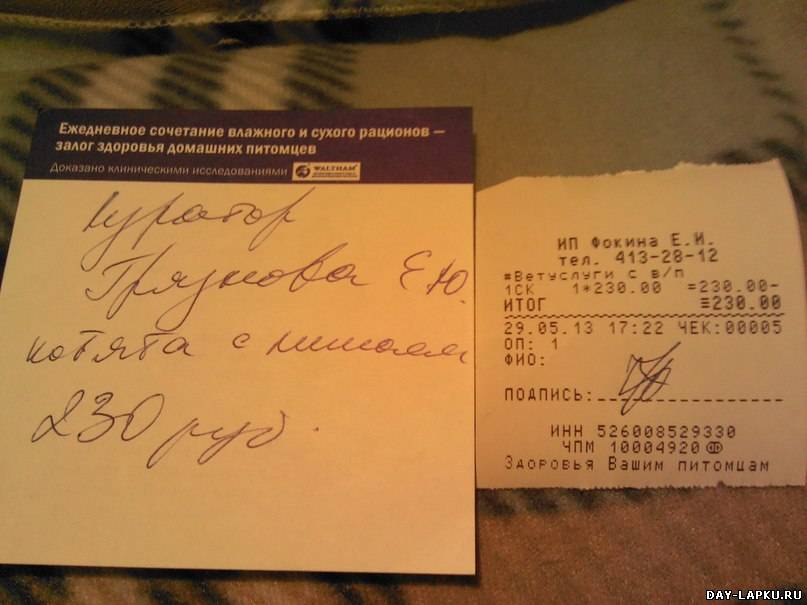 Ежедневное сочетание влажного и сухого рационов —
залог здоровья домашних питомцев
Доказано клиническими исследованиями WALTHAM
куратор
Грязнова Е.Ю.
котята с лишаем
230 руб.
ИП Фокина Е.И.
тел. 413-28-12
#Ветуслуги с в/п
1СК 1*230.00 =230.00-
ИТОГ ≡230.00
29.05.13 17:22 ЧЕК:00005
ОП: 1
ФИО:
ПОДПИСЬ:
ИНН 526008529330
ЧПМ 10004920
Здоровья Вашим питомцам
DAY-LAPKU.RU